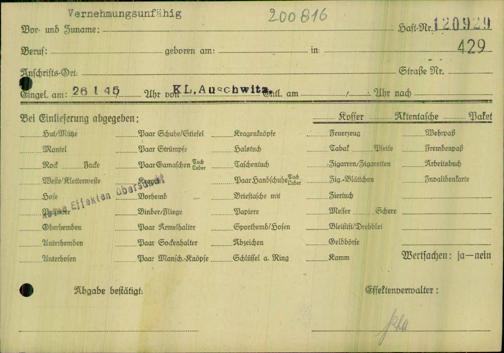 Vernehmungsunfähig 200816
Vor- und Zuname: Haft-Nr. 120929
429
Beruf: geboren am: in
Anschrifts-Ort: Straße Nr.
Eingel. am: 26 1 45 Uhr von KL. Auschwitz. Entl. am / Uhr nach
Bei Einlieferung abgegeben: Koffer Aktentasche Paket
Hut/Mütze Paar Schuhe/Stiefel Kragenknöpfe Feuerzeug Wehrpaß
Mantel Paar Strümpfe Halstuch Tabak Pfeife Fremdenpaß
Rock Jacke Paar Gamaschen Tuch Leder Taschentuch Zigarren/Zigaretten Arbeitsbuch
Weste/Kletterweste Kragen Paar Handschuhe Tuch Leder Zig-Blättchen Invalidenkarte
Hose Vorhemd Brieftasche mit Ziertuch
Keine Effekten übersandt
Binder/Fliege Papiere Messer Schere
Oberhemden Paar Ärmelhalter Sporthemd/Hosen Bleistift/Drehblei
Unterhemden Paar Sockenhalter Abzeichen Geldbörse
Unterhosen Paar Mansch.-Knöpfe Schlüssel a. Ring Kamm Wertsachen: ja—nein
Abgabe bestätigt: Effektenverwalter: